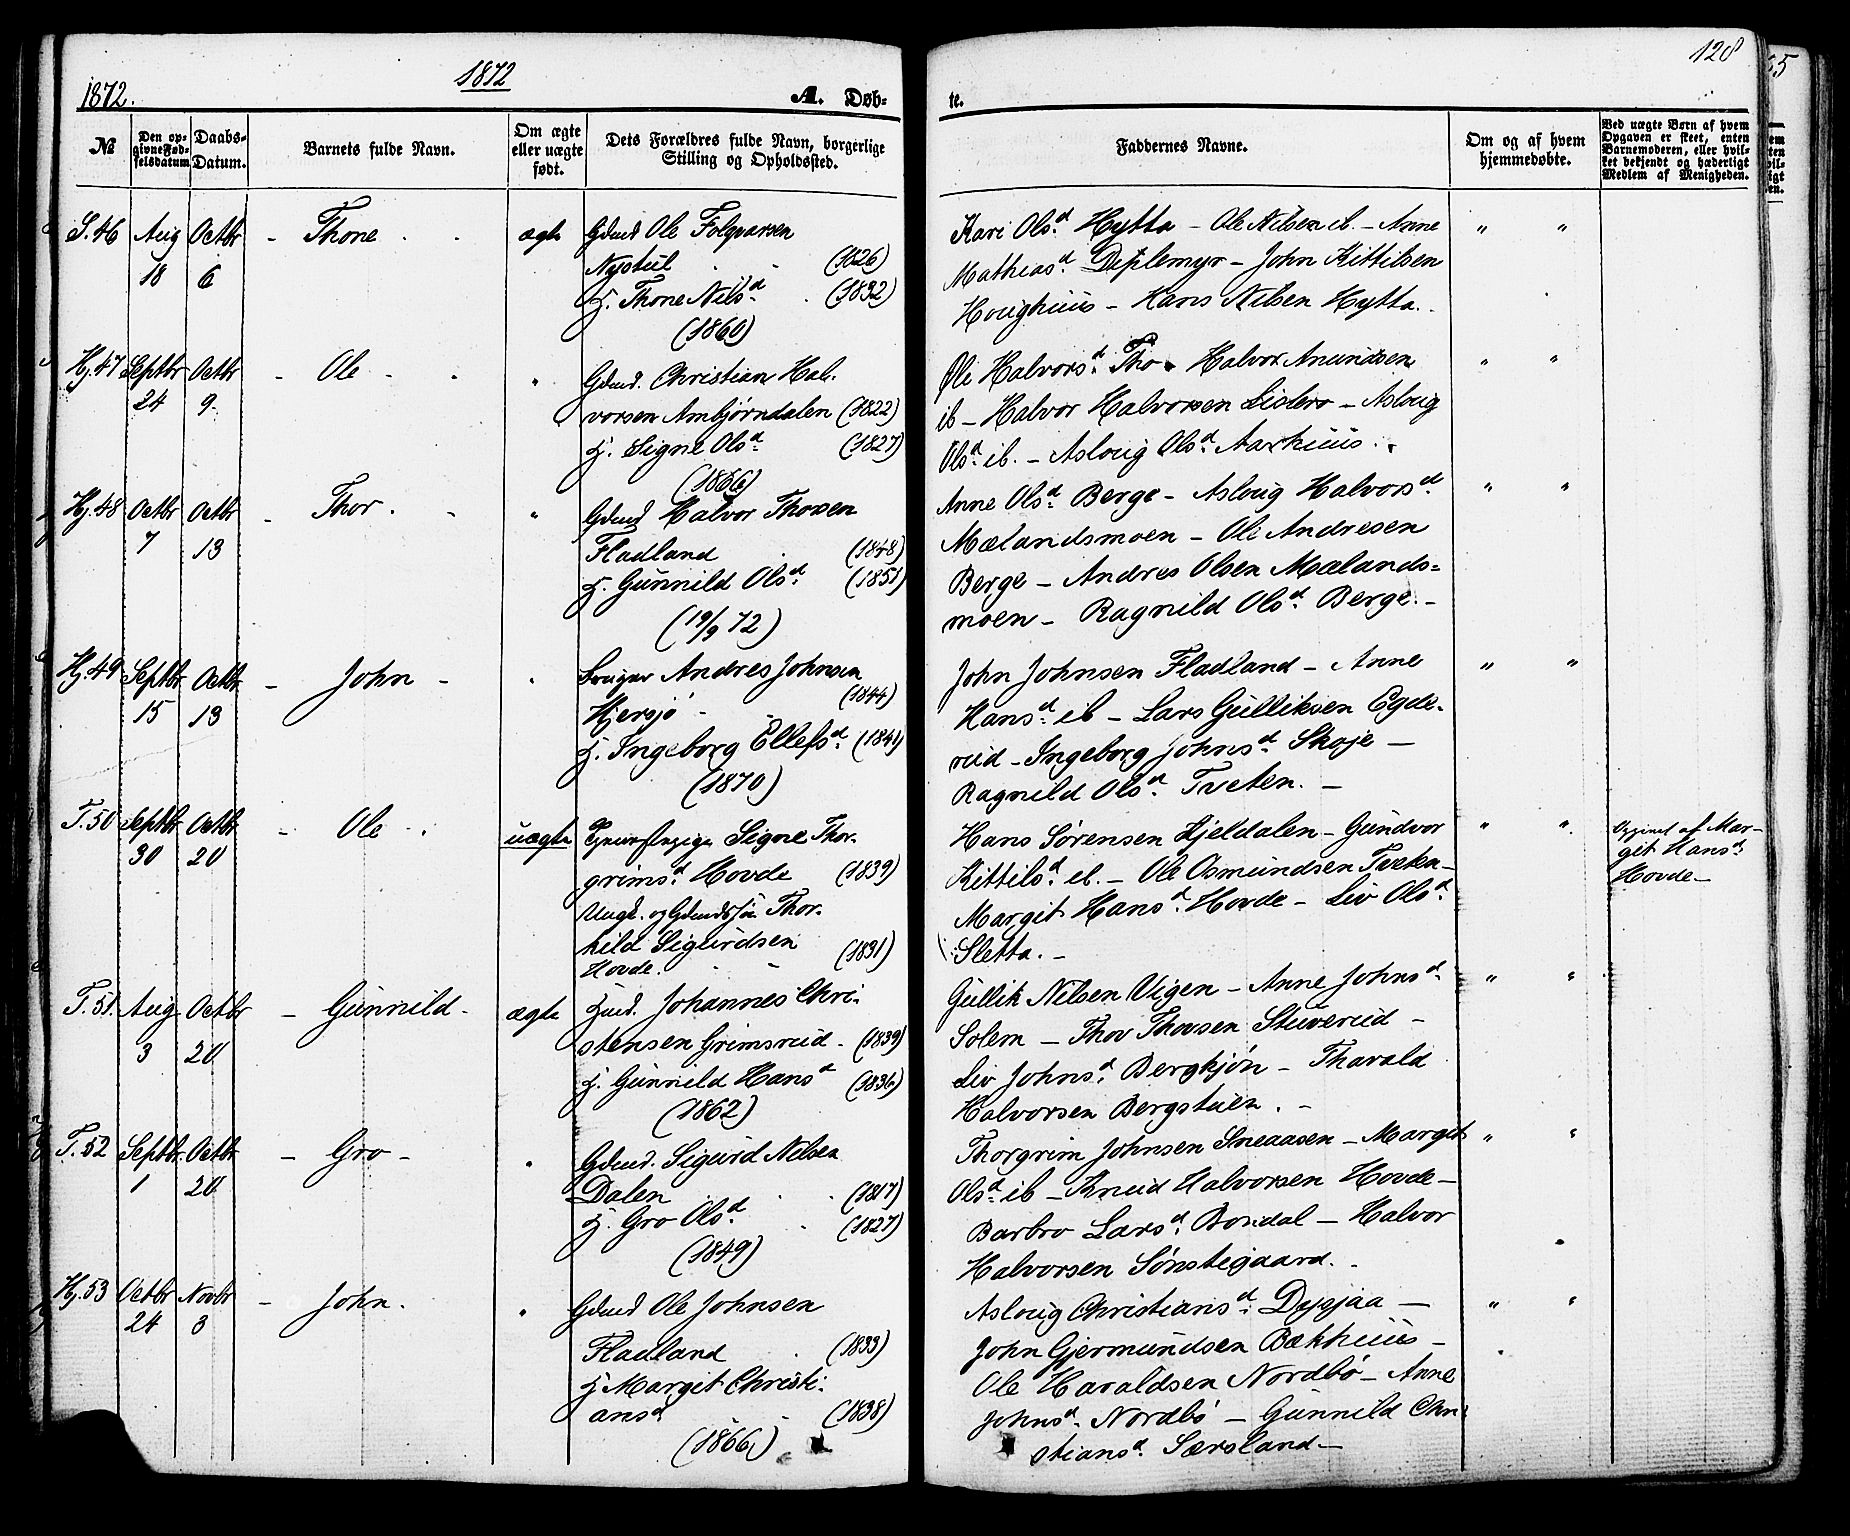 1872.
1872
A. Døb-
te.
128
№
Den op-
givne Fød-
selsdatum
Daabs-
Datum.
Barnets fulde Navn.
Om ægte
eller uægte
født.
Dets Forældres fulde Navn, borgerlige
Stilling og Opholdssted.
Faddernes Navne.
Om og af hvem
hjemmedøbte.
Ved uægte Børn af hvem
Opgaven er skeet, enten
Barnemoderen, eller hvil-
ket bekjendt og hæderligt
Medlem af Menigheden.
S. 46 Aug 18 Octbr 6 - Thone - - ægte
Gdmd Ole Folqvarsen
Nystul - - (1826)
H. Thone Nilsd. - (1832)
(1860)
Kari Olsd. Hytta - Ole Nilsen ib. - Anne
Mathiasd. Deplemyr - John Kittilsen
Houghuus - Hans Nilsen Hytta.
" "
Hj. 47 Septbr 24 Octbr 9 - Ole - - "
Gdmd. Christian Hal-
vorsen Ambjørndalen (1822)
H. Signe Olsd. (1827)
(1866)
Øli Halvorsd. Tho - Halvor Anundsen
ib - Halvor Halvorsen Lislero - Asloug
Olsd. ib. - Asloug Olsd. Aarhuus.
" "
Hj. 48 Octbr 7 Octbr 13 - Thor. - "
Gdmd Halvor Thorsen
Fladland (1848)
H. Gunnild Olsd. (1851)
(19/9 72)
Anne Olsd. Berge - Asloug Halvorsd.
Mælandsmoen - Ole Andresen
Berge - Andres Olsen Mælands=
moen - Ragnild Olsd. Berge. -
" "
Hj. 49 Septbr 15 Octbr 13 - John - "
Bruger Andres Johnsen
Hjersjø - - (1844)
H. Ingeborg Ellefsd. (1841)
(1870)
John Johnsen Fladland - Anne
Hansd. ib - Lars Gulliksen Egde-
rud - Ingeborg Johnsd. Skoje -
Ragnild Olsd. Tveten. -
" "
T. 50 Septbr 30 Octbr 20 - Ole - uægte
Signe Thor-
grimsd. Hovde (1839)
Ungk. og Gdmdssøn Thor-
kild Sigurdsen (1831)
Hovde. - -
Hans Sørensen Kjeldalen - Gundvor
Kittilsd. ib. - Ole Osmundsen Tveten -
Margit Hansd. Hovde - Liv Olsd.
Sletta. -
" "
Opgivet af Mar-
git Hansd.
Hovde -
T. 51. Aug 3 Octbr 20 - Gunnild - ægte
Johannes Chri-
stensen Grimsrud - (1839)
H. Gunnild Hansd (1836)
(1862)
Gullik Nilsen Vigen - Anne Johnsd.
Solem - Thov Thovsen Stuverud -
Liv Johnsd. Bergkjøn - Tharald
Halvorsen Bergstuen. -
" "
T. 52 Septbr 1 Octbr 20 - Gro - "
Gdmd. Sigurd Nilsen
Dalen - - (1817)
H. Gro Olsd. - (1827)
(1849)
Thorgrim Johnsen Sneaasen - Margit
Olsd. ib - Knud Halvorsen Hovde -
Barbro Larsd. Bondal - Halvor
Halvorsen Sønstegaard. -
" "
Hj. 53 Octbr 24 Novbr 3 - John. "
Gdmd Ole Johnsen
Fladland - (1833)
H Margit Christi-
ansd - (1838)
(1866)
Asloug Christiansd. Dyrjaa -
John Gjermundsen Bækhuus -
Ole Haraldsen Nordbø - Anne
Johnsd. Nordbø - Gunnild Chri-
stiansd. Særsland -
" "